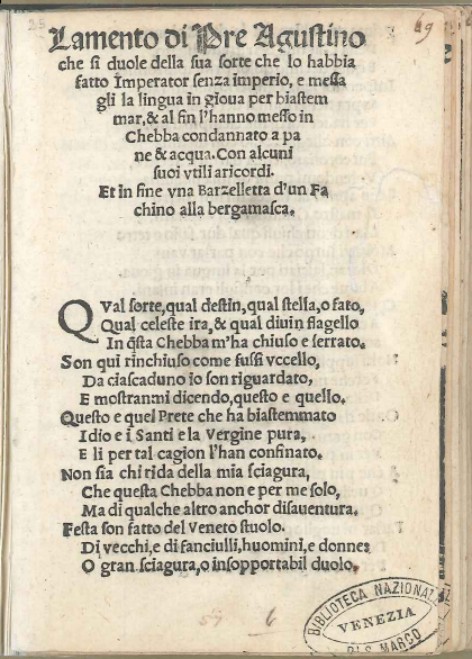 25
69
Lamento di Pre Agustino
che si duole della sua sorte che lo habbia
fatto Imperator senza imperio, e messa
gli la lingua in gioua per biastem
mar, & al fin l'hanno messo in
Chebba condannato a pa
ne & acqua. Con alcuni
suoi vtili aricordi.
Et in fine vna Barzelletta d'un Fa
chino alla bergamasca.
QVal sorte, qual destin, qual stella, o fato,
Qual celeste ira, & qual diuin flagello
In q̃sta Chebba m'ha chiuso e serrato.
Son qui rinchiuso come fussi vccello,
Da ciascaduno io son riguardato,
E mostranmi dicendo, questo e quello.
Questo e quel Prete che ha biastemmato
Idio e i Santi e la Vergine pura,
E li per tal cagion l'han confinato.
Non sia chi rida della mia sciagura,
Che questa Chebba non e per me solo,
Ma di qualche altro anchor disauentura.
Festa son fatto del Veneto stuolo.
Di vecchi, e di fanciulli, huomini, e donne:
O gran sciagura, o insopportabil duolo.
57 6
BIBLIOTECA NAZIONALE
VENEZIA
DI S. MARCO